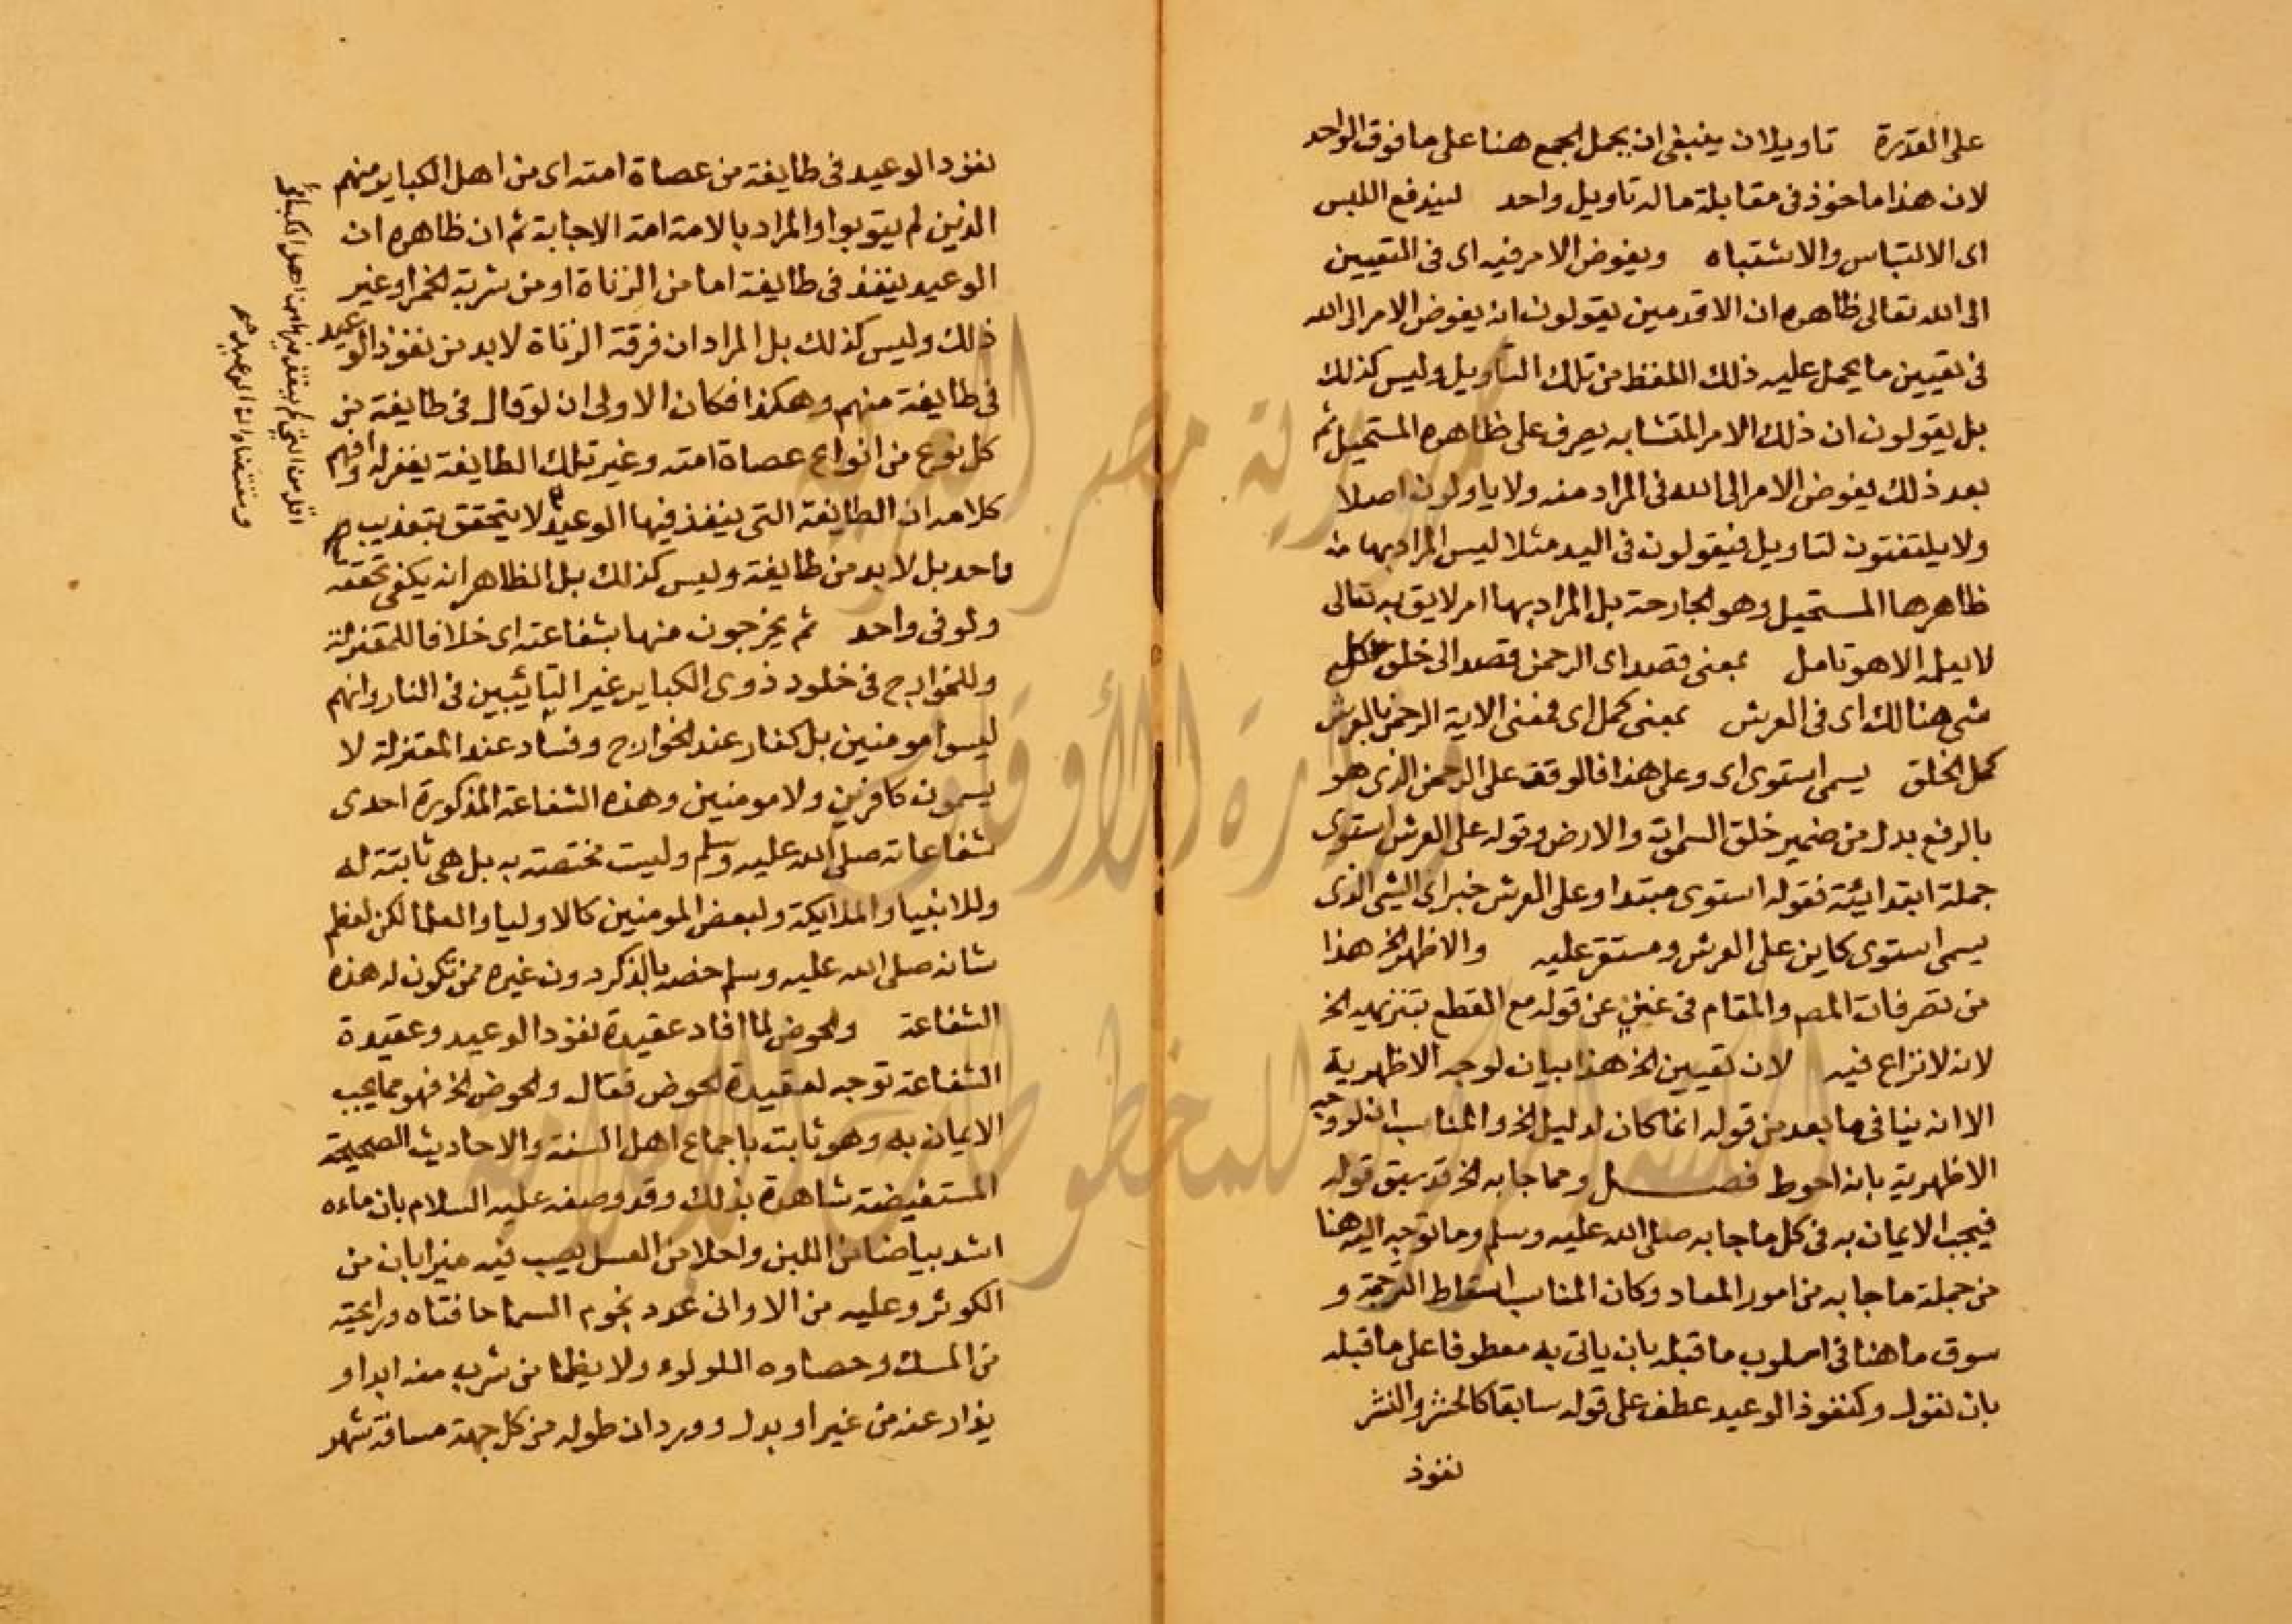 على القدرة تاويلان ينبغى ان يحمل الجمع هنا على ما فوق الواحد
لان هذا ماخوذ فى مقابلة ما له تاويل واحد ليندفع اللبس
اى الالتباس والاشتباه ويفوض الامر فيه اى فى التعيين
الى الله تعالى ظاهره ان الاقدمين يقولون انه يفوض الامر الى الله
فى تعيين ما يحمل عليه ذلك اللفظ من تلك التاويل وليس كذلك
بل يقولون ان ذلك الامر المتشابه يصرف على ظاهره المستحيل ثم
بعد ذلك يفوض الامر الى الله فى المراد منه ولا ياولون اصلا
ولا يلتفتون لتاويل فيقولون فى اليد مثلا ليس المراد بها
ظاهرها المستحيل وهو الجارحة بل المراد بها امر لايق به تعالى
لا يعلمه الا هو تامل بمعنى قصد اى الرحمن قصد الى خلق كل
شى هنالك اى فى العرش بمعنى كمل اى فمعنى الاية الرحمن بالعرش
كمل الخلق يسمى استوى اى وعلى هذا فالوقف على الرحمن الذى هو
بالرفع بدل من ضمير خلق السموات والارض وقوله على العرش استوى
جملة ابتدائية فقوله استوى مبتدا وعلى العرش خبر اى الشى الذى
يسمى استوى كاين على العرش ومستقر عليه والاظهر الخ هذا
من تصرفات المص والمقام فى غنى عن قوله مع القطع بتنزيهه الخ
لانه لا نزاع فيه لان تعيين الخ هذا بيان لوجه الاظهرية
الا انه ينافى ما بعد من قوله انما كان لدليل الخ والمناسب ان لو وجه
الاظهرية بانه احوط فصل ومما جا به الخ قد سبق قوله
فيجب الايمان به فى كل ما جا به صلى الله عليه وسلم وما توجه اليه هنا
من جملة ما جا به من امور المعاد وكان المناسب اسقاط الترجمة و
سوق ما هنا فى اسلوب ما قبله بان ياتى به معطوفا على ما قبله
بان نقول وكنفوذ الوعيد عطف على قوله سابقا كالحشر والنشر
نفوذ
نفوذ الوعيد فى طايفة من عصاة امته اى من اهل الكباير منهم
الذين لم يتوبوا والمراد بالامة امة الاجابة ثم ان ظاهره ان
الوعيد ينفذ فى طايفة اما من الزناة او من شربة الخمر او غير
ذلك وليس كذلك بل المراد ان فرقة الزناة لا بد من نفوذ الوعيد
فى طايفة منهم وهكذا فكان الاولى ان لو قال فى طايفة من
كل نوع من انواع عصاة امته وغير تلك الطايفة يغفر له وافهم
كلامه ان الطايفة التى ينفذ فيها الوعيد لا يتحقق بتعذيب
واحد بل لا بد من طايفة وليس كذلك بل الظاهر انه يكفى تحققه
ولو فى واحد ثم يخرجون منها بشفاعته اى خلافا للمعتزلة
وللخوارج فى خلود ذوى الكباير غير التائبين فى النار وانهم
ليسوا مومنين بل كفار عند الخوارج وفساد عند المعتزلة لا
يسمون كافرين ولا مومنين وهذه الشفاعة المذكورة احدى
شفاعاته صلى الله عليه وسلم وليست مختصة به بل هى ثابتة له
وللانبيا والملايكة ولبعض المومنين كالاوليا والعلما لكن لعظم
شانه صلى الله عليه وسلم خصه بالذكر دون غيره ممن تكون له هذه
الشفاعة والحوض لما افاد عقيدة نفوذ الوعيد وعقيدة
الشفاعة توجه لعقيدة الحوض فقال والحوض الخ فهو مما يجب
الايمان به وهو ثابت باجماع اهل السنة والاحاديث الصحيحة
المستفيضة شاهدة بذلك وقد وصفه عليه السلام بان ماءه
اشد بياضا من اللبن واحلا من العسل يصب فيه ميزابان من
الكوثر وعليه من الاوانى عدد نجوم السما حافتاه ورايحته
من المسك وحصاوه اللولوء ولا يظما من شرب منه ابدا و
يذاد عنه من غير او بدل وورد ان طوله من كل جهة مسافة شهر
جمهورية مصر العربية
وزارة الأوقاف
المكتبة المركزية للمخطوطات الإسلامية